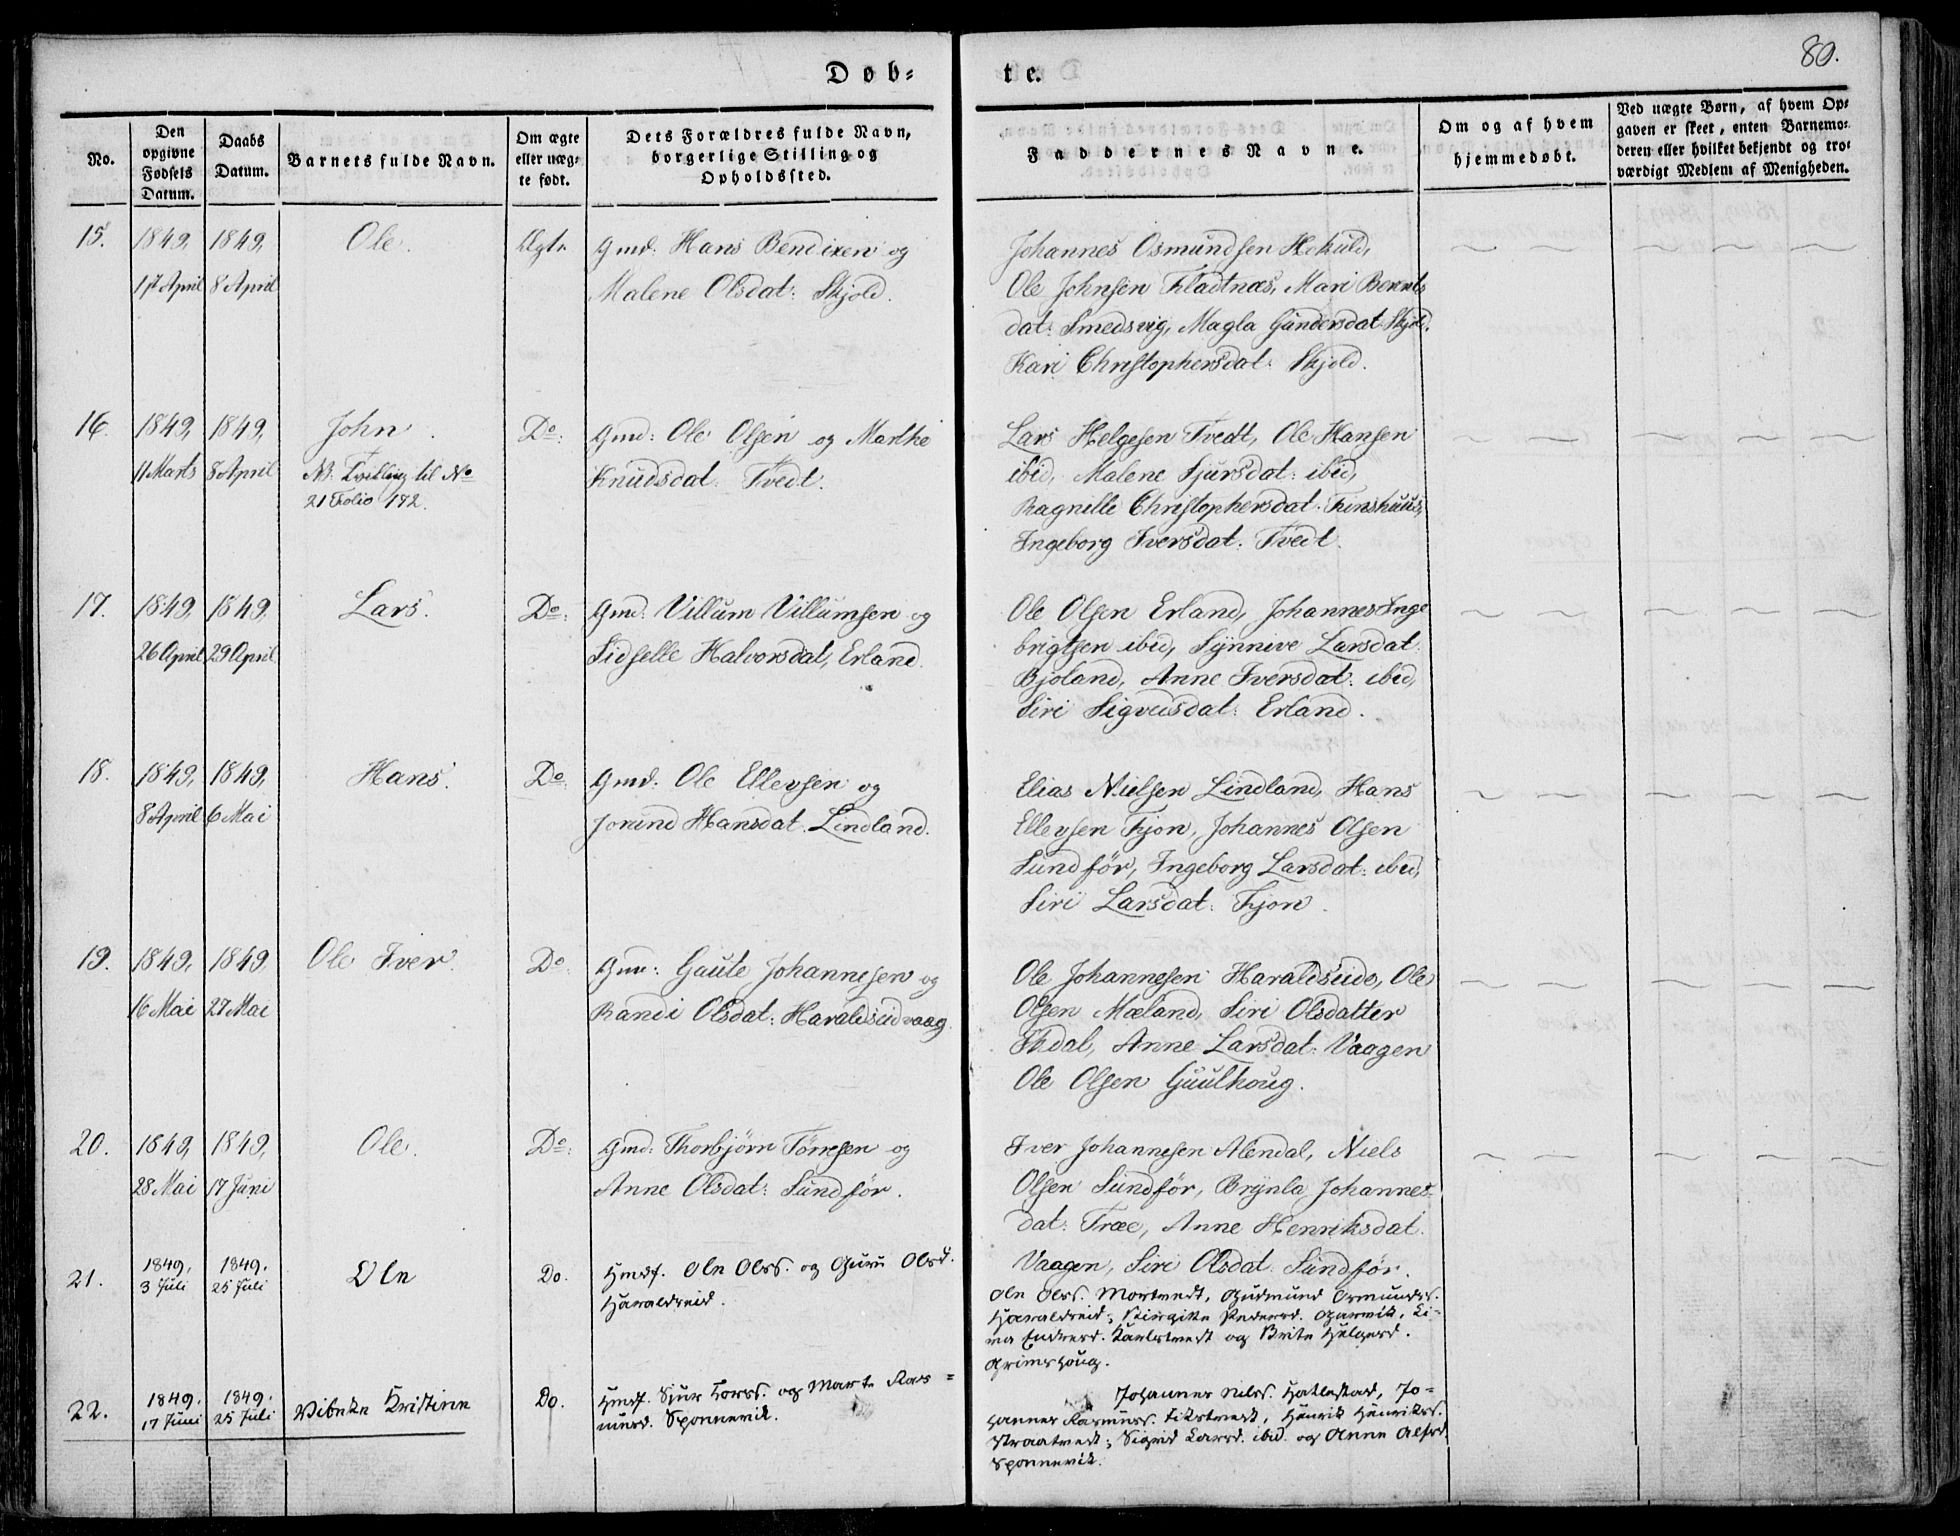 80.
Døb=
te.
No.
Den opgivne Fødsels Datum.
Daabs Datum.
Barnets fulde Navn.
Om ægte eller uæg- te født.
Dets Forældres fulde Navn, borgerlige Stilling og Opholdssted.
Faddernes Navne.
Om og af hvem hjemmedøbt.
Ved uægte Børn, af hvem Op- gaven er skeet, enten Barnemo- deren eller hvilket bekjendt og tro- værdigt Medlem af Menigheden.
15. 1849, 1849, Ole. Ægte Gmd: Hans Bendixen og
1st April 8 April Malene Olsdat: Skjold.
Johannes Osmundsen
Ole Johnsen Fladtnæs, Mari Bernts
dat: Smedsvig, Magla Gundersdat: Skjold,
Kari Christophersdat: Skjold.
16. 1849, 1849, John. Do: Gmd: Ole Olsen og Marthe
11 Marts 8 April NB. Tvilling til No Knudsdat: Tvedt.
21 Folio 172.
Lars Helgesen Tvedt, Ole Hansen
ibid, Malene Sjursdat: ibid,
Ragnille Christophersdat:
Ingeborg Iversdat: Tvedt.
17. 1849, 1849, Lars. Do: Gmd: Villum Villumsen og
26 April 29 April Sidselle Halvorsdat, Erland.
Ole Olsen Erland, Johannes Inge
brigtsen ibid, Synnive Larsdat:
Bjoland, Anne Iversdat: ibid,
Siri Sigveisdat: Erland.
18. 1849, 1849, Hans. Do Gmd: Ole Ellevsen og
8 April 6 Mai Jorind Hansdat: Lindland.
Elias Nielsen Lindland, Hans
Ellevsen Fjon, Johannes Olsen
Sundfør, Ingeborg Larsdat: ibid,
Siri Larsdat: Fjon.
19. 1849, 1849. Ole Iver. Do Gmd: Gaute Johannesen og
16 Mai 27 Mai Randi Olsdat: Haraldseidvaag.
Ole Johannesen Haraldseide, Ole
Olsen Mæland, Siri Olsdatter
Anne Larsdat: Vaagen
Ole Olsen Guulhoug.
20. 1849, 1849, Ole. Do: Gmd: Thorbjørn Tørresen og
28 Mai 17 Juni Anne Olsdat: Sundfør.
Iver Johannesen Alendal, Niels
Olsen Sundfør, Brynla Johannes-
dat: Træe, Anne Henriksdat:
Vaagen, Siri Olsdat: Sundfør.
21. 1849. 1849. Ole Do. Hmdf. Ole Olss. og Guru Olsd.
3 Juli 25 Juli Haraldseid.
Ole Olss. Mortvedt, Gudmund Osmundss.
Haraldseid; Birgitte Pedersd. Garvik,
Endresd. og Brite Helgesd.
Grimshoug.
22. 1849. 1849. Vibeke Kristine Do. Hmdf. Sjur Larss. og Marte Ras=
17 Juni 25 Juli musd. Sponnevik.
Johannes Nilss. Hatlestad, Jo=
hannes Rasmuss. Henrik Henrikss.
Straatvedt; Sigrid Larsd. ibid. og Anne
Sponnevik.